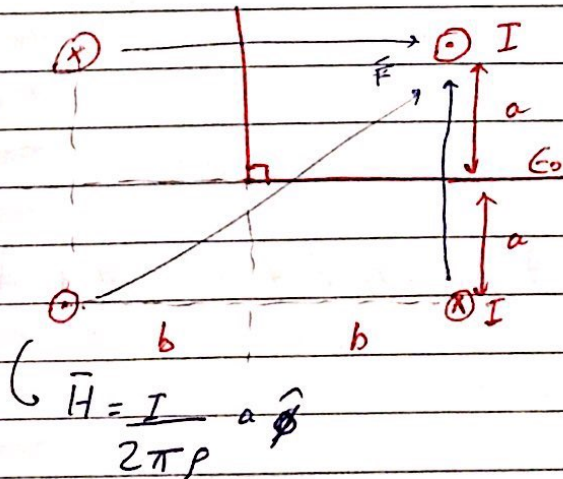 I
F
a
ϵ₀
a
I
b b
H̄ = I / 2πρ a φ̂